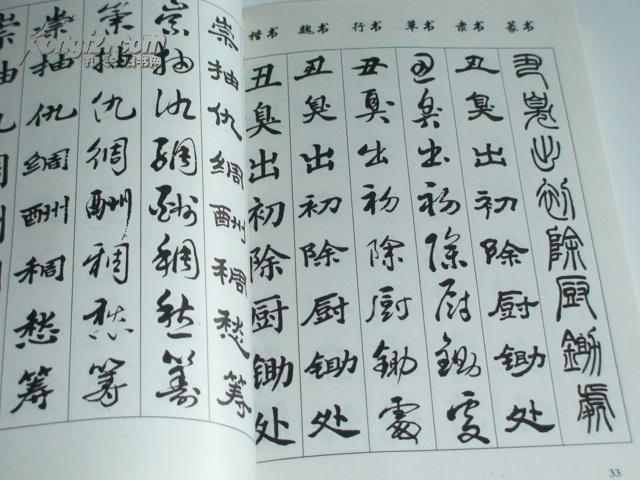 崇抽仇绸酬稠愁筹
崇抽仇绸酬稠愁筹
崇抽仇绸酬稠愁籌
崇抽仇绸酬稠愁筹
楷书 魏书 行书 草书 隶书 篆书
丑臭出初除厨锄处
丑臭出初除厨锄处
丑臭出初除厨锄處
丑臭出初除厨锄處
丑臭出初除厨锄处
丑臭出初除厨鋤處
33